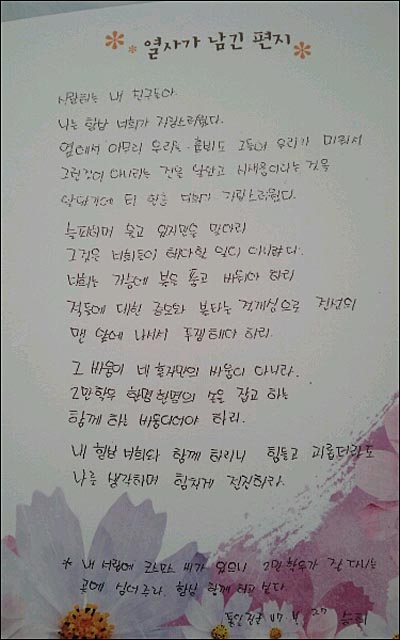 * * 열사가 남긴 편지 *
사랑하는 내 친구들아.
나는 항상 너희가 자랑스러웠다.
옆에서 아무리 우리를 흉보도 그들이 우리가 미워서
그런것이 아니라는 것을 알았고 시새움이라는 것을
알았기에 더 한층 너희가 자랑스러웠다.
슬퍼하며 울고 있지만을 말아라
그것은 너희들이 해야할 일이 아니란다.
너희는 가슴에 불을 품고 싸워야 하리
적들에 대한 증오와 불타는 적개심으로 전선의
맨 앞에 나서서 투쟁해야 하리.
그 싸움이 네 혼자만의 싸움이 아니라.
2만학우 한명 한명의 손을 잡고 하는
함께 하는 싸움이어야 하리.
내 항상 너희와 함께 하리니 힘들고 괴롭더라도
나를 생각하며 힘차게 전진하라.
* 내 서랍에 코스모스 씨가 있으니 2만학우가 잘 다니는
곳에 심어주라. 항상 함께 하고 싶다.
27 승희